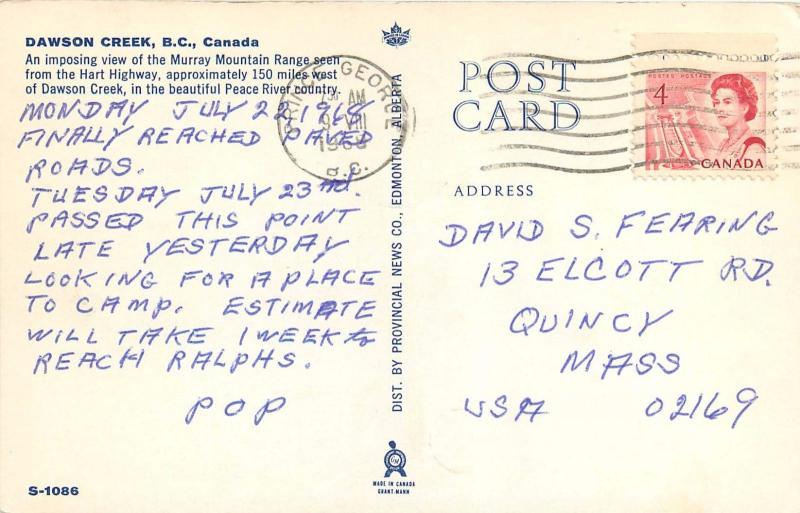 DAWSON CREEK, B.C., Canada
An imposing view of the Murray Mountain Range seen
from the Hart Highway, approximately 150 miles west
of Dawson Creek, in the beautiful Peace River country.
MONDAY JULY 22, 1968
FINALLY REACHED PAVED
ROADS.
TUESDAY JULY 23rd
PASSED THIS POINT
LATE YESTERDAY
LOOKING FOR A PLACE
TO CAMP. ESTIMATE
WILL TAKE 1 WEEK to
REACH RALPHS.
POP
S-1086
DIST. BY PROVINCIAL NEWS CO., EDMONTON, ALBERTA
MADE IN CANADA
GRANT-MANN
PRINCE GEORGE
AM
VII
B.C.
POST
CARD
POSTES POSTAGE
4
CANADA
ADDRESS
DAVID S. FEARING
13 ELCOTT RD.
QUINCY
MASS
USA 02169